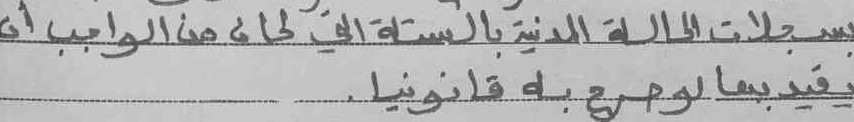 بسجلات الحالة المدنية بالستة التي كان من الواجب أن
يقيد بها لو صرح به قانونيا.